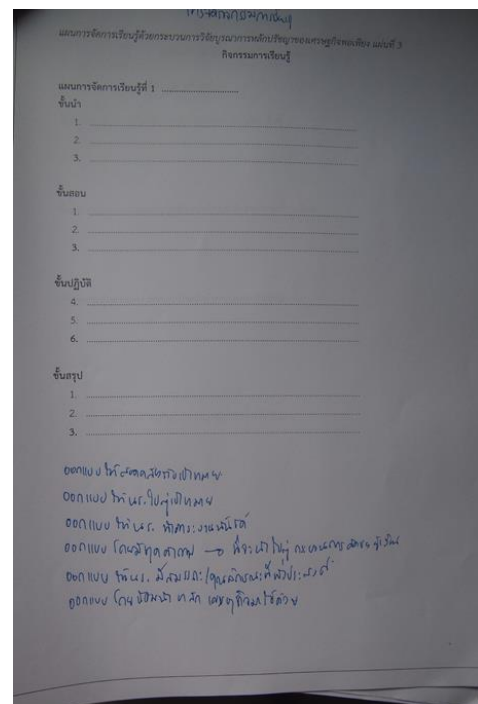 แผนการจัดการเรียนรู้ด้วยกระบวนการวิจัยบูรณาการหลักปรัชญาของเศรษฐกิจพอเพียง แผ่นที่ 3
กิจกรรมการเรียนรู้
แผนการจัดการเรียนรู้ที่ 1 ..............................
ขั้นนำ
1. ....................
2. ....................
3. ....................
ขั้นสอน
1. ....................
2. ....................
3. ....................
ขั้นปฏิบัติ
4. ....................
5. ....................
6. ....................
ขั้นสรุป
1. ....................
2. ....................
3. ....................
ออกแบบ ให้สอดคล้องกับเป้าหมาย
ออกแบบ ให้ นร. ไปสู่เป้าหมาย
ออกแบบ ให้ นร. ทำภาระงาน
ออกแบบ โดยมีชุดคำถาม → ที่จะนำไปสู่ กระบวนการ
ออกแบบ ให้ นร. มีสมรรถนะ/คุณลักษณะที่พึงประสงค์
ออกแบบ โดยน้อมนำ หลัก มาใช้ด้วย